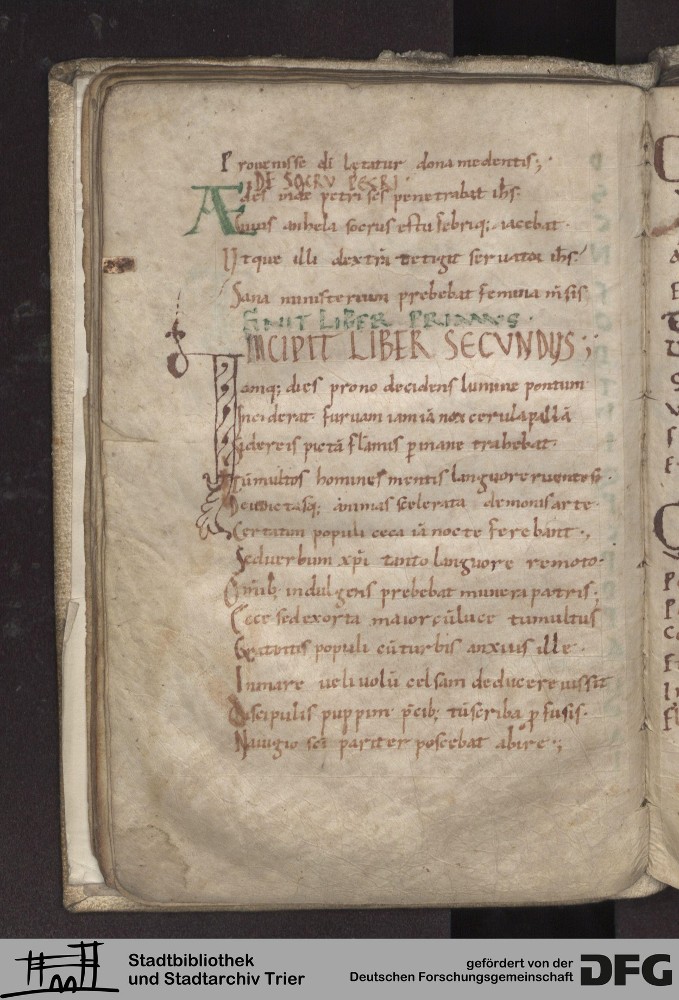 Provenisse di lętatur dona medentis;
DE SOCRU PETRI
AEdes inde petri ses penetrabat ihs.
anhela socrus estu febriq; iacebat.
Utque illi dextrā tetigit servator ihs
Sana ministerium prebebat femina mīsis
FINIT LIBER PRIMUS.
INCIPIT LIBER SECVNDVS;
Iamq; dies prono decidens lumine pontum
Inciderat. furuam iam iā nox cerula pallā
Sidereis pictā flāmis p mane trahebat.
Tū multos homines mentis languore ruentes
Deuinctasq; animas scelerata demonis arte
Certatim populi ceca iā nocte ferebant.,
Sed uerbum xpi tanto languore remoto.
Omīb; indulgens prebebat munera patris;
Ecce sed exorta maior cū luce tumultus
populi cū turbis anxius ille
In mare ueliuolū celsam deducere iussit
Discipulis puppim. pcib; tū scriba pfusis.
Nauigio sci pariter poscebat abire;
Stadtbibliothek
und Stadtarchiv Trier
gefördert von der
Deutschen Forschungsgemeinschaft
DFG